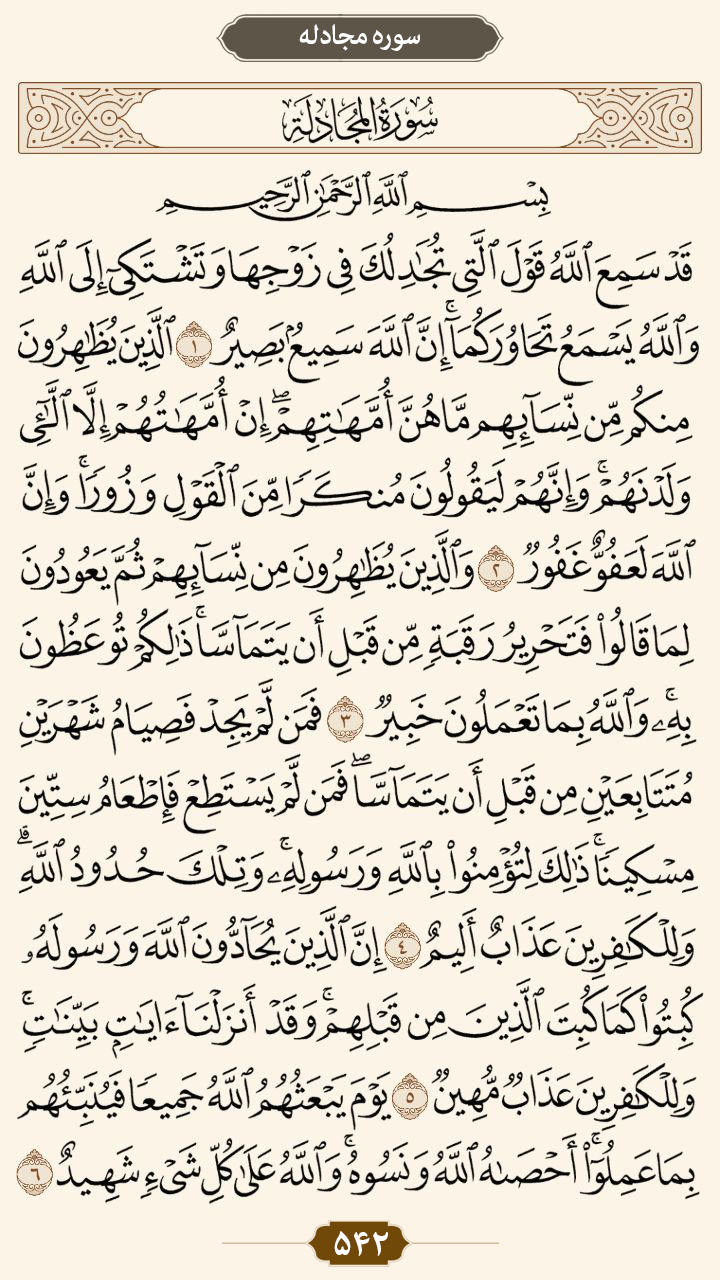 سوره مجادله
سُورَةُ المُجَادلَةِ
بِسْمِ ٱللَّهِ ٱلرَّحْمَٰنِ ٱلرَّحِيمِ
قَدْ سَمِعَ ٱللَّهُ قَوْلَ ٱلَّتِى تُجَٰدِلُكَ فِى زَوْجِهَا وَتَشْتَكِىٓ إِلَى ٱللَّهِ
وَٱللَّهُ يَسْمَعُ تَحَاوُرَكُمَآۚ إِنَّ ٱللَّهَ سَمِيعُۢ بَصِيرٌ ١ ٱلَّذِينَ يُظَٰهِرُونَ
مِنكُم مِّن نِّسَآئِهِم مَّا هُنَّ أُمَّهَٰتِهِمْۖ إِنْ أُمَّهَٰتُهُمْ إِلَّا ٱلَّٰٓـِٔى
وَلَدْنَهُمْۚ وَإِنَّهُمْ لَيَقُولُونَ مُنكَرًا مِّنَ ٱلْقَوْلِ وَزُورًاۚ وَإِنَّ
ٱللَّهَ لَعَفُوٌّ غَفُورٌ ٢ وَٱلَّذِينَ يُظَٰهِرُونَ مِن نِّسَآئِهِمْ ثُمَّ يَعُودُونَ
لِمَا قَالُوا۟ فَتَحْرِيرُ رَقَبَةٍ مِّن قَبْلِ أَن يَتَمَآسَّاۚ ذَٰلِكُمْ تُوعَظُونَ
بِهِۦۚ وَٱللَّهُ بِمَا تَعْمَلُونَ خَبِيرٌ ٣ فَمَن لَّمْ يَجِدْ فَصِيَامُ شَهْرَيْنِ
مُتَتَابِعَيْنِ مِن قَبْلِ أَن يَتَمَآسَّاۖ فَمَن لَّمْ يَسْتَطِعْ فَإِطْعَامُ سِتِّينَ
مِسْكِينًاۚ ذَٰلِكَ لِتُؤْمِنُوا۟ بِٱللَّهِ وَرَسُولِهِۦۚ وَتِلْكَ حُدُودُ ٱللَّهِۗ
وَلِلْكَٰفِرِينَ عَذَابٌ أَلِيمٌ ٤ إِنَّ ٱلَّذِينَ يُحَآدُّونَ ٱللَّهَ وَرَسُولَهُۥ
كُبِتُوا۟ كَمَا كُبِتَ ٱلَّذِينَ مِن قَبْلِهِمْۚ وَقَدْ أَنزَلْنَآ ءَايَٰتٍۭ بَيِّنَٰتٍۚ
وَلِلْكَٰفِرِينَ عَذَابٌ مُّهِينٌ ٥ يَوْمَ يَبْعَثُهُمُ ٱللَّهُ جَمِيعًا فَيُنَبِّئُهُم
بِمَا عَمِلُوٓا۟ۚ أَحْصَىٰهُ ٱللَّهُ وَنَسُوهُۚ وَٱللَّهُ عَلَىٰ كُلِّ شَىْءٍ شَهِيدٌ ٦
۵۴۲